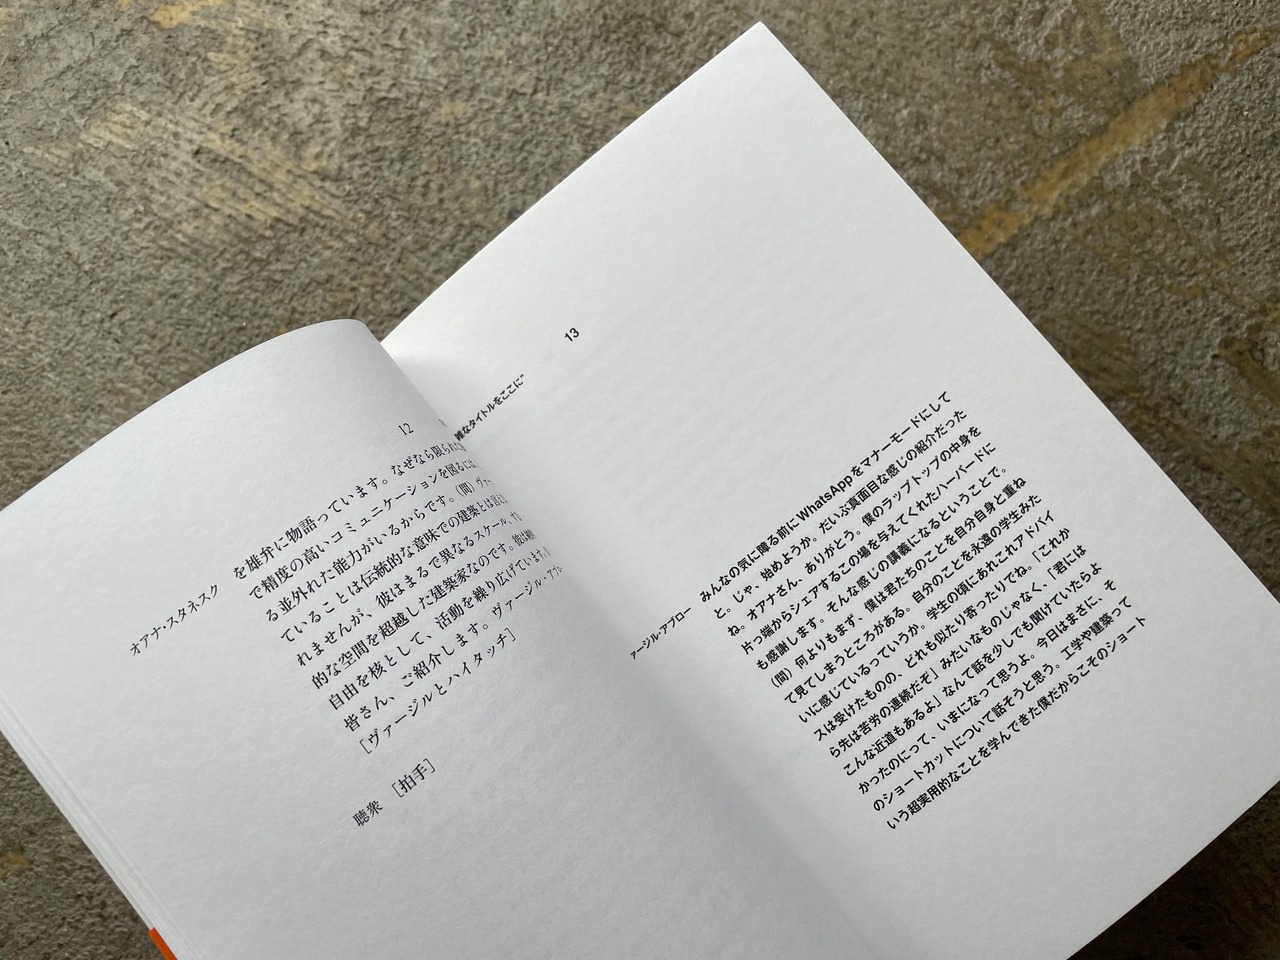 12
オアナ・スタネスク
を雄弁に物語っています。なぜなら限られた
で精度の高いコミュニケーションを図るには、
る並外れた能力がいるからです。(間)ヴァ
ていることは伝統的な意味での建築とは
れませんが、彼はまるで異なるスケール、
的な空間を超越した建築家なのです。彼は
自由を核として、活動を繰り広げています。
皆さん、ご紹介します。ヴァージル・アブ
[ヴァージルとハイタッチ]
聴衆 [拍手]
13
雑なタイトルをここに”
ァージル・アブロー
みんなの気に障る前にWhatsAppをマナーモードにして
と。じゃ、始めようか。だいぶ真面目な感じの紹介だった
ね。オアナさん、ありがとう。僕のラップトップの中身を
片っ端からシェアするこの場を与えてくれたハーバードに
も感謝します。そんな感じの講義になるということで。
(間)何よりもまず、僕は君たちのことを自分自身と重ね
て見てしまうところがある。自分のことを永遠の学生みた
いに感じているっていうか。学生の頃にあれこれアドバイ
スは受けたものの、どれも似たり寄ったりでね。「これか
ら先は苦労の連続だぞ」みたいなものじゃなく、「君には
こんな近道もあるよ」なんて話を少しでも聞けていたらよ
かったのにって、いまになって思うよ。今日はまさに、そ
のショートカットについて話そうと思う。工学や建築って
いう超実用的なことを学んできた僕だからこそのショート